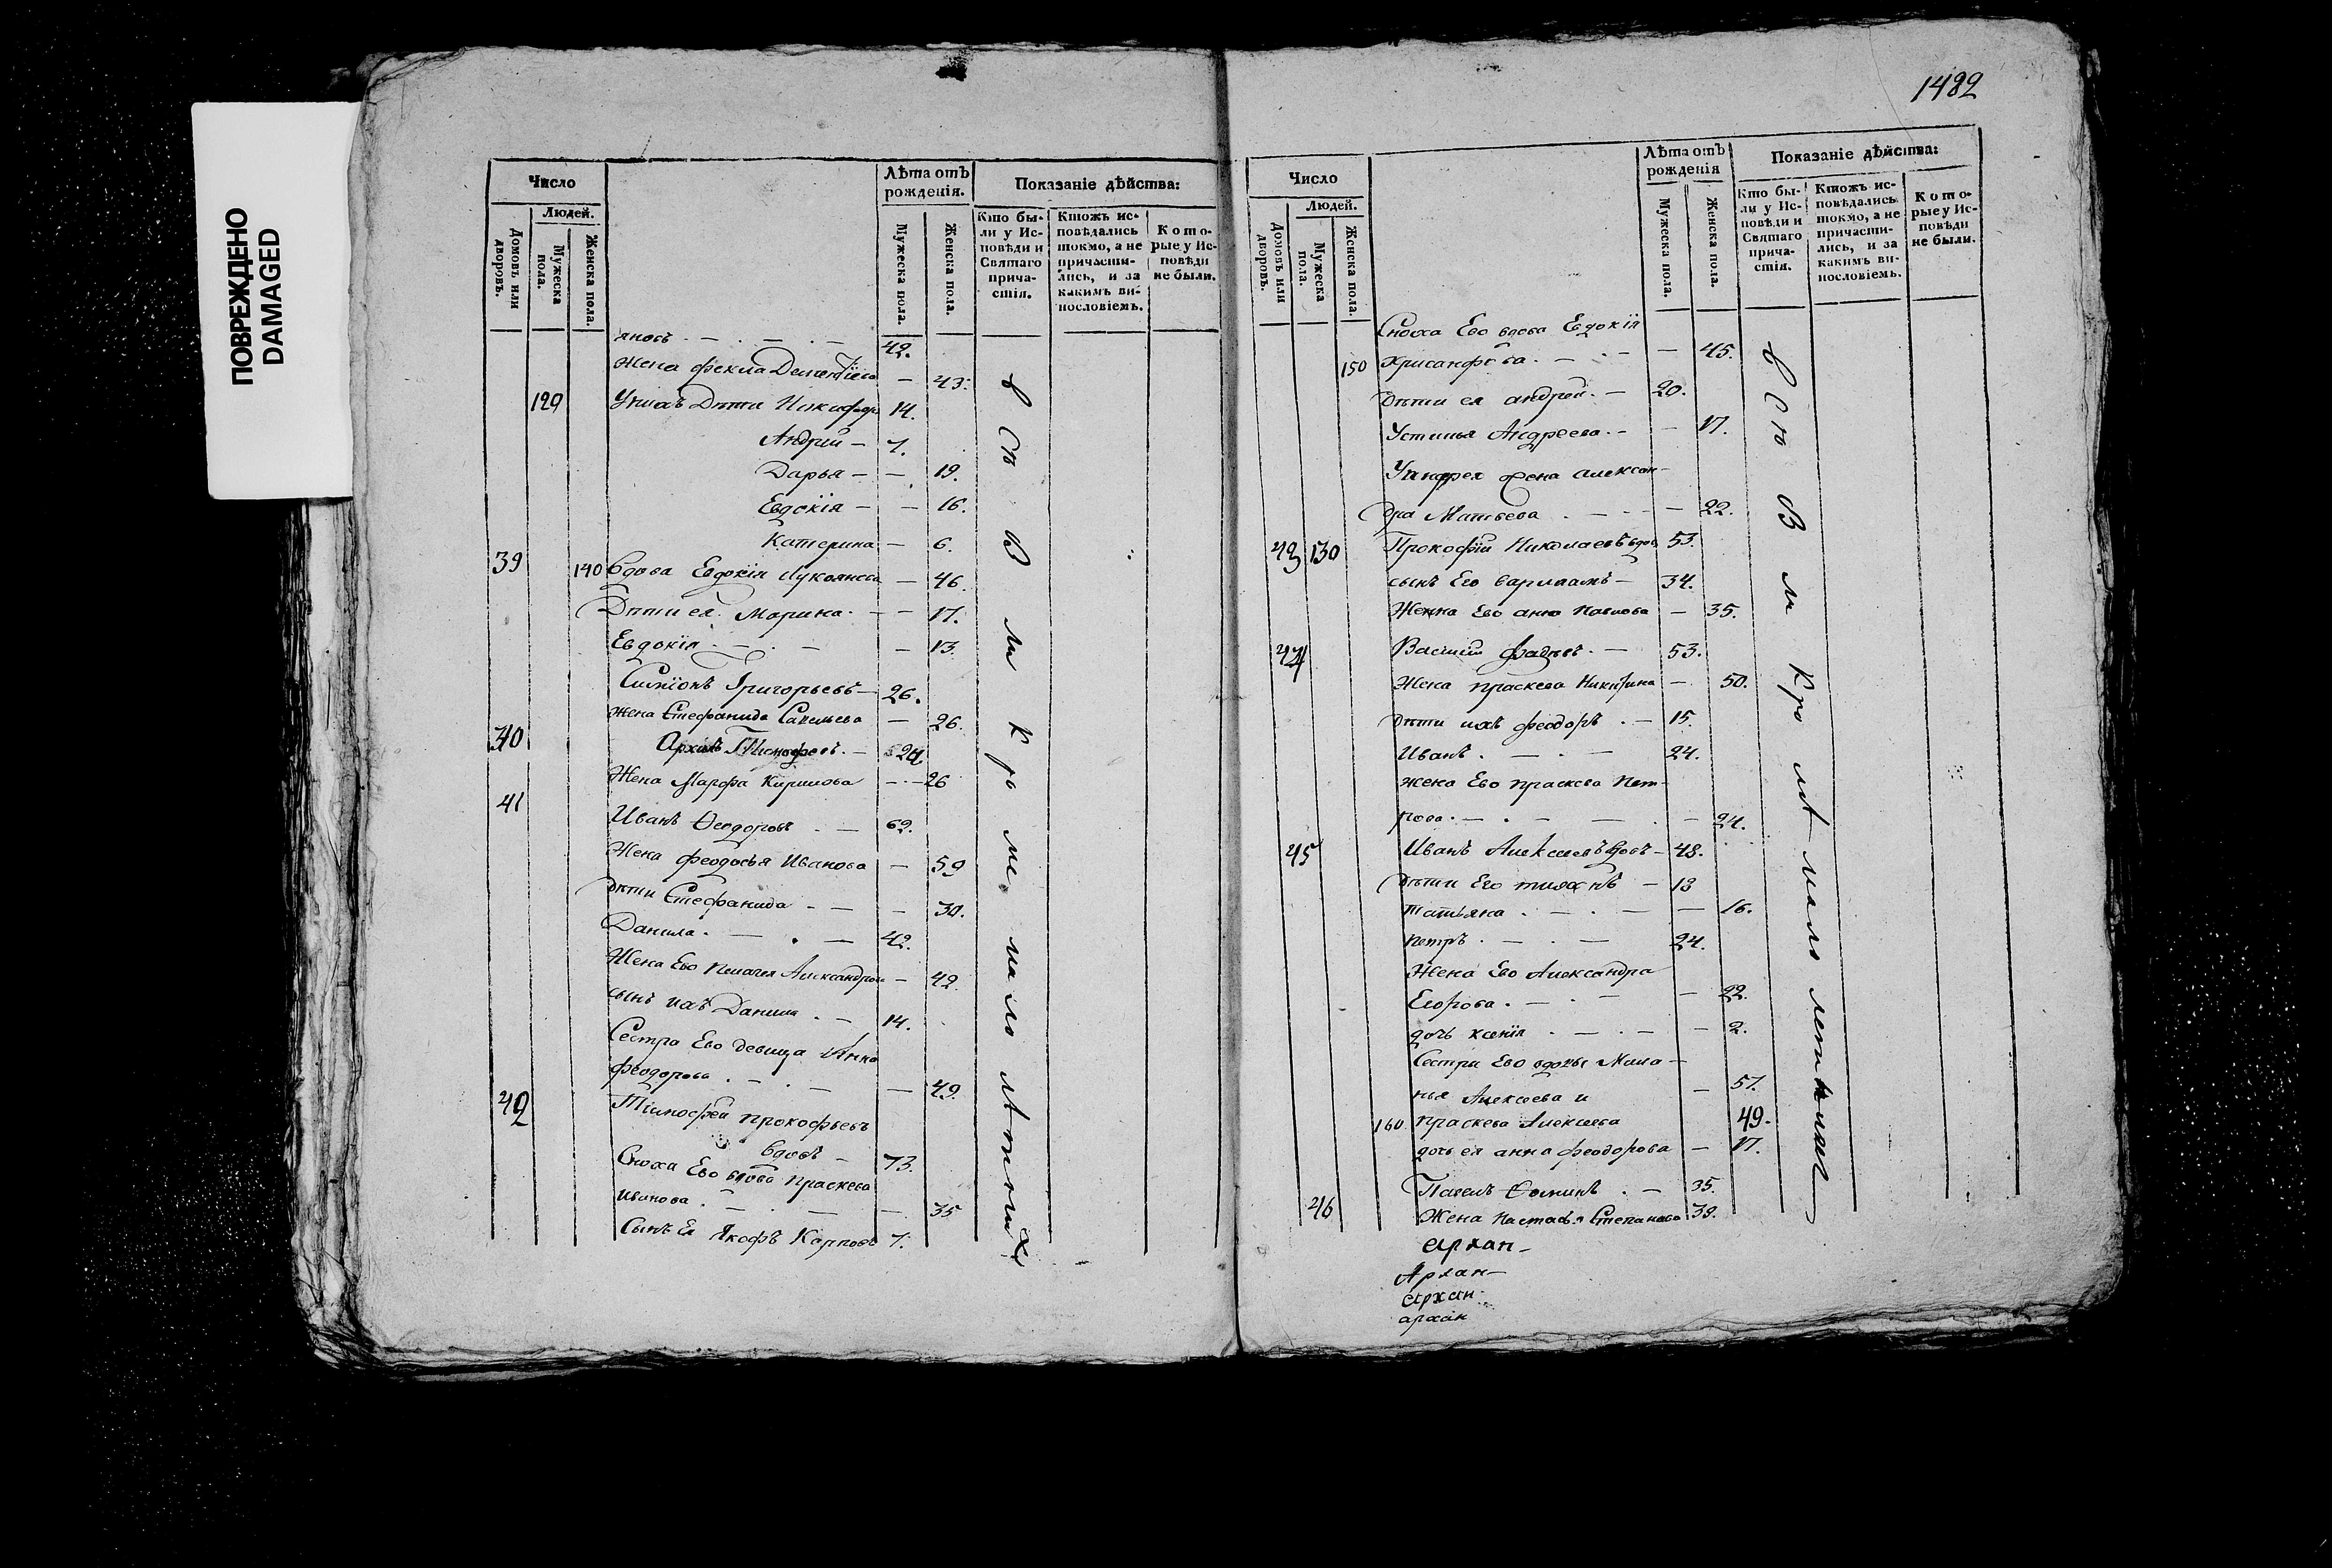 ПОВРЕЖДЕНО
DAMAGED
Число
Людей.
Домовъ или дворовъ.
Мужеска пола.
Женска пола.
Лѣта отъ рожденія.
Мужеска пола.
Женска пола.
Показаніе дѣйства:
Кто бы-
ли у Ис-
повѣди и
Святаго
прича-
стія.
Ктожъ ис-
повѣдались
токмо, а не
причасти-
лись, и за
какимъ ви-
нословіемъ.
Кото-
рые у Ис-
повѣди
не были.
яновъ 42.
Жена Фекла Дементїева 43.
129 У нихъ Дѣти Никифоръ 14.
Андрей 7.
Дарья 19.
Евдокія 16.
Катерина 6.
39 140 Вдова Евдокія Лукоянова 46.
Дѣти ея Марина 17.
Евдокія 13.
Симїонъ Григорьевъ 26.
Жена Стефанида Савельева 26.
40 Архипъ Тимофеевъ 24
Жена Марфа Кирилова 26
41 Иванъ Ѳеодоровъ 62.
Жена феодосья Иванова 59
дѣти Стефанида 30.
Данила 42.
Жена Ево Пелагея Александрова 42.
сынъ ихъ Данила 14.
Сестра Ево девица Анна
феодорова 49.
42 Тимофей прокофьевъ
вдовъ 73.
Сноха Ево вдова праскева
иванова 35
Сынъ Ея Якофъ Карповъ 7.
всѣ
кроме
малолѣтныхъ
1482
Число
Людей.
Домовъ или дворовъ.
Мужеска пола.
Женска пола.
Лѣта отъ
рожденія
Мужеска пола.
Женска пола.
Показаніе дѣйства:
Кто бы-
ли у Ис-
повѣди и
Святаго
прича-
стія.
Ктожъ ис-
повѣдались
токмо, а не
причасти-
лись, и за
какимъ ви-
нословіемъ.
Кото-
рые у Ис-
повѣди
не были.
Сноха Ево вдова Евдокія
150 Хрисанфова 45.
дѣти ея андрей 20.
Устинья Андреева 17.
У андрея жена алексан-
дра Матвева 22.
43 130 Прокофїй Николаевъ вдов 53.
сынъ Его варлаамъ 34.
Женна Ево анна павлова 35.
44 Василий фадѣевъ 53.
Жена праскева Никитина 50.
дѣти ихъ феодоръ 15.
Иванъ 24.
жена Ево праскева Пет-
рова 24.
45 Иванъ Алексеевъ вдовъ 48.
дѣти Его тихонъ 13
татьяна 16.
петръ 24.
Жена Ево Александра
Егорова 22.
дочь ксенїя 2.
Сестры Ево вдовы Мала-
нья Алексеева и 57.
160. праскева Алексеева 49.
дочь ея анна феодорова 17.
46 Павелъ Ѳоминъ 35.
Жена Настасья Степанова 38.
архан-
Архан-
архан
архан
всѣ
кромѣ малолетныхъ